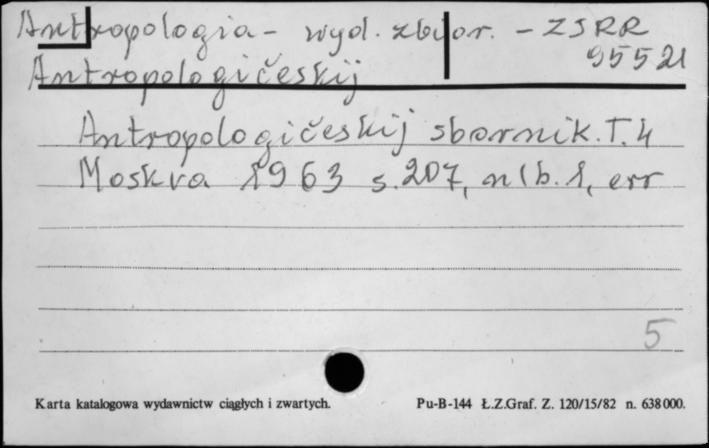 Antropologia - wyd. zbior. - ZSRR
95521
Antropologičeskij
Antropologičeskij sbornik. T. 4
Moskva 1963 s. 207, nlb. 1, err
5
Karta katalogowa wydawnictw ciągłych i zwartych. Pu-B-144 Ł.Z.Graf. Z. 120/15/82 n. 638000.